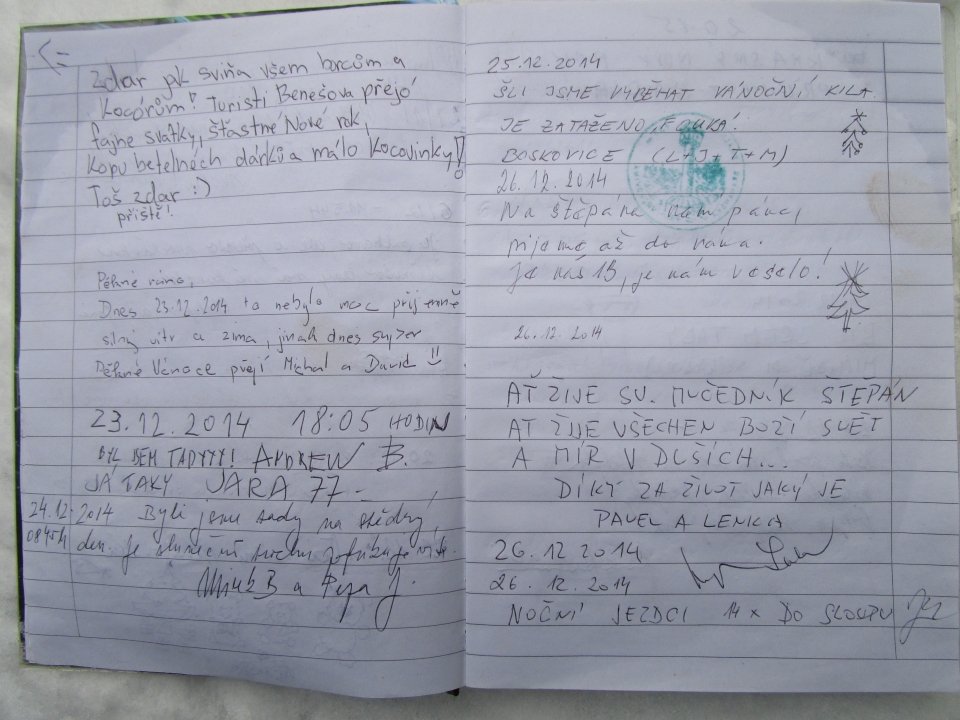 <=
Zdar jak sviňa všem borcům a
Kocórům! Turisti Benešova přejó
fajne svátky, šťastné Nové rok,
Kopu betelnéch dárků a málo Kocovinky!
Toš zdar :)
příště!
Pěkné ráno,
Dnes 23.12.2014 to nebylo moc příjemné
silný vítr a zima, jinak dnes super
Pěkné Vánoce přejí Michal a David
23.12.2014 18:05 HODIN
BYL SEM TADYYY! ANDREW B.
JÁ TAKY JARA 77
24.12. 2014 Byli jsme tady na štědrý
0845h den. Je slunečně trochu pofukuje vítr.
Mirek B a Pepa J.
25.12.2014
ŠLI JSME VYBĚHAT VÁNOČNÍ KILA.
JE ZATAŽENO, FOUKÁ!
BOSKOVICE (L+J+T+M)
26.12.2014
Na Štěpána není pána,
pijeme až do rána.
Je nás 13, je nám veselo!
26.12.2014
AŤ ŽIJE SV. MUČEDNÍK ŠTĚPÁN
AŤ ŽIJE VŠECHEN BOŽÍ SVĚT
A MÍR V DUŠÍCH...
DÍKY ZA ŽIVOT JAKÝ JE
PAVEL A LENKA
26.12 2014
26.12.2014
NOČNÍ JEZDCI 14x DO SLOUPU